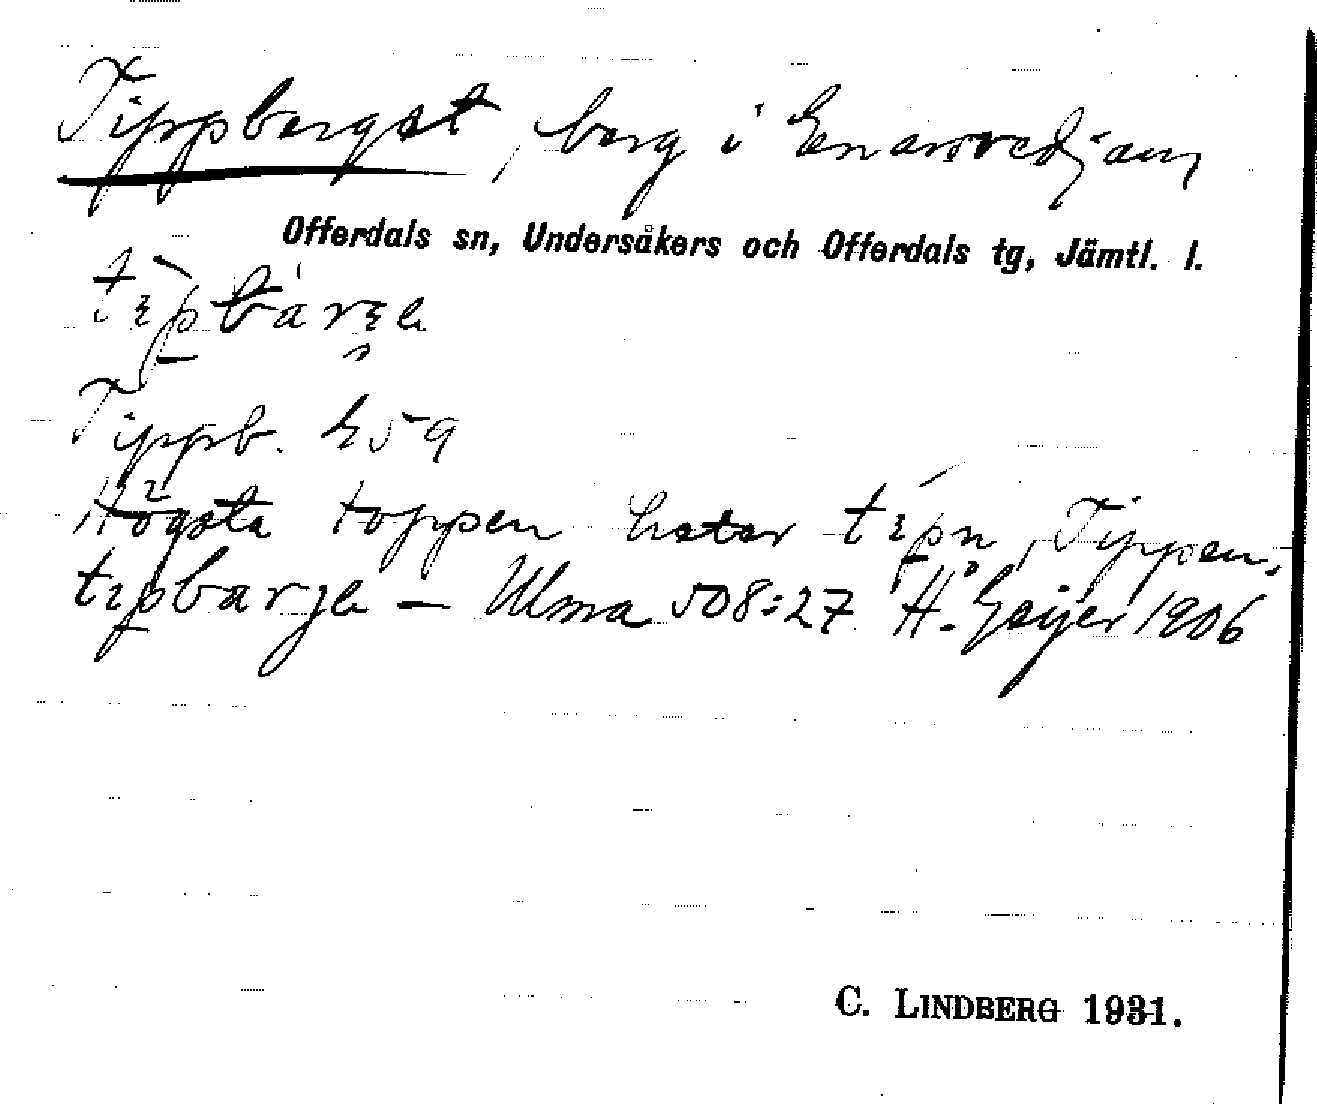 Tippberget, berg i Enarsvedjan
Offerdals sn, Undersåkers och Offerdals tg, Jämtl. l.
Tippb. E59
Högsta toppen heter tɩpn, Tippen,
tɩpbarje – Ulma 508:27 H. Geijer 1906
C. LINDBERG 1931.